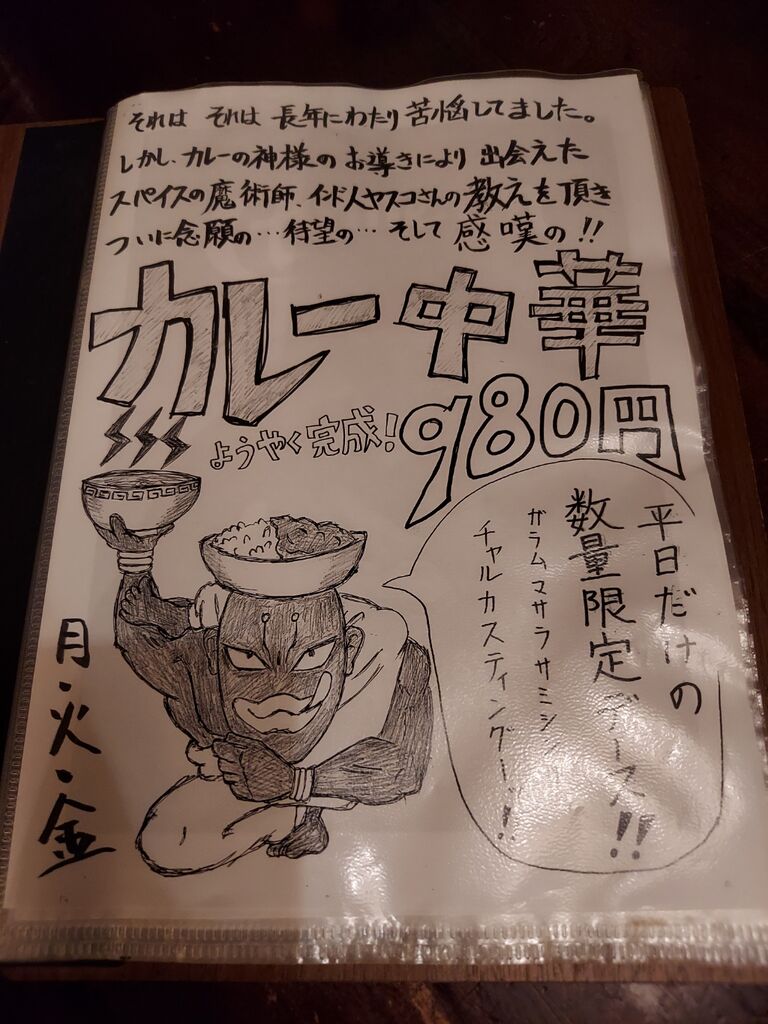 それは それは 長年にわたり 苦悩してました。
しかし、カレーの神様の お導きにより 出会えた
スパイスの魔術師、インド人ヤスコさんの教えを頂き
ついに念願の…待望の… そして 感嘆の!!
カレー中華
ようやく完成!
980円
平日だけの
数量限定デース!!
ガラムマサラサミシン
チャルカスティングー!!
月・火・金